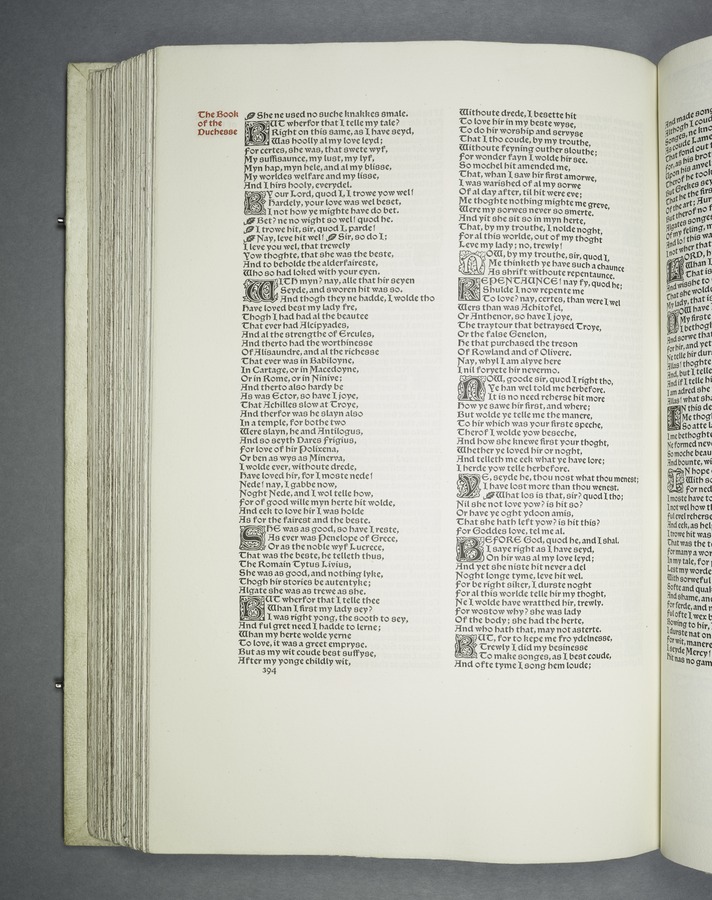 The Book
of the
Duchesse
She ne used no suche knakkes smale.
BUT wherfor that I telle my tale?
Right on this same, as I have seyd,
Was hoolly al my love leyd;
For certes, she was, that swete wyf,
My suffisaunce, my lust, my lyf,
Myn hap, myn hele, and al my blisse,
My worldes welfare and my lisse,
And I hirs hooly, everydel.
By our Lord, quod I, I trowe yow wel!
Hardely, your love was wel beset,
I not how ye mighte have do bet.
Bet? ne no wight so wel! quod he.
I trowe hit, sir, quod I, parde!
Nay, leve hit wel! Sir, so do I;
I leve you wel, that trewely
Yow thoghte, that she was the beste,
And to beholde the alderfaireste,
Who so had loked with your eyen.
WITH myn? nay, alle that hir seyen
Seyde, and sworen hit was so.
And thogh they ne hadde, I wolde tho
Have loved best my lady fre,
Thogh I had had al the beautee
That ever had Alcipyades,
And al the strengthe of Ercules,
And therto had the worthinesse
Of Alisaundre, and al the richesse
That ever was in Babiloyne,
In Cartage, or in Macedoyne,
Or in Rome, or in Ninive;
And therto also hardy be
As was Ector, so have I joye,
That Achilles slow at Troye,
And therfor was he slayn also
In a temple, for bothe two
Were slayn, he and Antilogus,
And so seyth Dares Frigius,
For love of hir Polixena,
Or ben as wys as Minerva,
I wolde ever, withoute drede,
Have loved hir, for I moste nede!
Nede! nay, I gabbe now,
Noght Nede, and I wol telle how,
For of good wille myn herte hit wolde,
And eek to love hir I was holde
As for the fairest and the beste.
SHE was as good, so have I reste,
As ever was Penelope of Grece,
Or as the noble wyf Lucrece,
That was the beste, he telleth thus,
The Romain Tytus Livius,
She was as good, and nothing lyke,
Thogh hir stories be autentyke;
Algate she was as trewe as she.
BUT wherfor that I telle thee
Whan I first my lady sey?
I was right yong, the sooth to sey,
And ful gret need I hadde to lerne;
Whan my herte wolde yerne
To love, it was a greet empryse,
But as my wit coude best suffyse,
After my yonge childly wit,
394
Withoute drede, I besette hit
To love hir in my beste wyse,
To do hir worship and servyse
That I tho coude, by my trouthe,
Withoute feyning outher slouthe;
For wonder fayn I wolde hir see.
So mochel hit amended me,
That, whan I saw hir first amorwe,
I was warished of al my sorwe
Of al day after, til hit were eve;
Me thoghte nothing mighte me greve,
Were my sorwes never so smerte.
And yit she sit so in myn herte,
That, by my trouthe, I nolde noght,
For al this worlde, out of my thoght
Leve my lady; no, trewely!
NOW, by my trouthe, sir, quod I,
Me thinketh ye have such a chaunce
As shrift withoute repentaunce.
REPENTAUNCE! nay fy, quod he;
Shulde I now repente me
To love? nay, certes, than were I wel
Wers than was Achitofel,
Or Anthenor, so have I joye,
The traytour that betraysed Troye,
Or the false Genelon,
He that purchased the treson
Of Rowland and of Olivere.
Nay, whyl I am alyve here
I nil foryete hir nevermo.
NOW, goode sir, quod I right tho,
Ye han wel told me herbefore.
It is no need reherse hit more
How ye sawe hir first, and where;
But wolde ye telle me the manere,
To hir which was your firste speche,
Therof I wolde yow beseche,
And how she knewe first your thoght,
Whether ye loved hir or noght,
And telleth me eek what ye have lore;
I herde yow telle herbefore.
YE, seyde he, thou nost what thou menest;
I have lost more than thou wenest.
What los is that, sir? quod I tho;
Nil she not love yow? is hit so?
Or have ye oght ydoon amis,
That she hath left yow? is hit this?
For Goddes love, tel me al.
BEFORE God, quod he, and I shal.
I saye right as I have seyd,
On hir was al my love leyd;
And yet she niste hit never a del
Noght longe tyme, leve hit wel.
For be right siker, I durste noght
For al this worlde telle hir my thoght,
Ne I wolde have wratthed hir, trewly.
For wostow why? she was lady
Of the body; she had the herte,
And who hath that, may not asterte.
BUT, for to kepe me fro ydelnesse,
Trewly I did my besinesse
To make songes, as I best coude,
And ofte tyme I song hem loude;